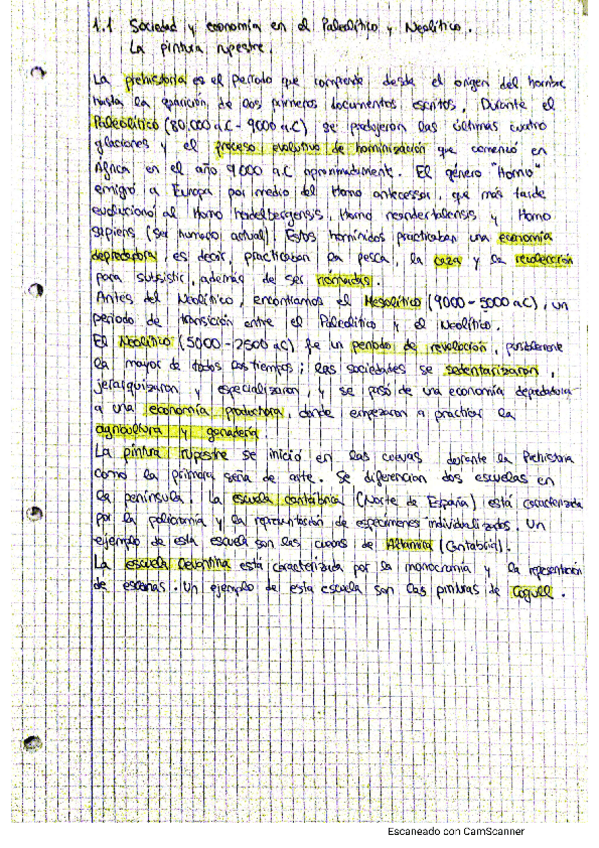 1.1 Sociedad y economía en el Paleolítico y Neolítico.
La pintura rupestre.
La prehistoria es el periodo que comprende desde el origen del hombre
hasta la aparición de los primeros documentos escritos. Durante el
Paleolítico (80.000 a.C - 9000 a.C) se produjeron las últimas cuatro
glaciones y el proceso evolutivo de hominización que comenzó en
África en el año 9000 a.C aproximadamente. El género "Homo"
emigró a Europa por medio del Homo antecessor, que más tarde
evolucionó al Homo heidelbergensis, Homo neandertalensis y Homo
sapiens (ser humano actual). Estos homínidos practicaban una economía
depredadora, es decir, practicaban la pesca, la caza y la recolección
para subsistir, además de ser nómadas.
Antes del Neolítico, encontramos el Mesolítico (9000 - 5000 a.C), un
periodo de transición entre el Paleolítico y el Neolítico.
El Neolítico (5000 - 2500 a.C) fue un periodo de revolución, posiblemente
la mayor de todos los tiempos; las sociedades se sedentarizaron,
jerarquizaron y especializaron, y se pasó de una economía depredadora
a una economía productora, donde empezaron a practicar la
agricultura y ganadería.
La pintura rupestre se inició en las cuevas durante la Prehistoria
como la primera seña de arte. Se diferencian dos escuelas en
la península. La escuela cantábrica (Norte de España) está caracterizada
por la policromía y la representación de especímenes individualizados. Un
ejemplo de esta escuela son las cuevas de Altamira (Cantabria).
La escuela levantina está caracterizada por la monocromía y la representación
de escenas. Un ejemplo de esta escuela son las pinturas de Cogull.
Escaneado con CamScanner